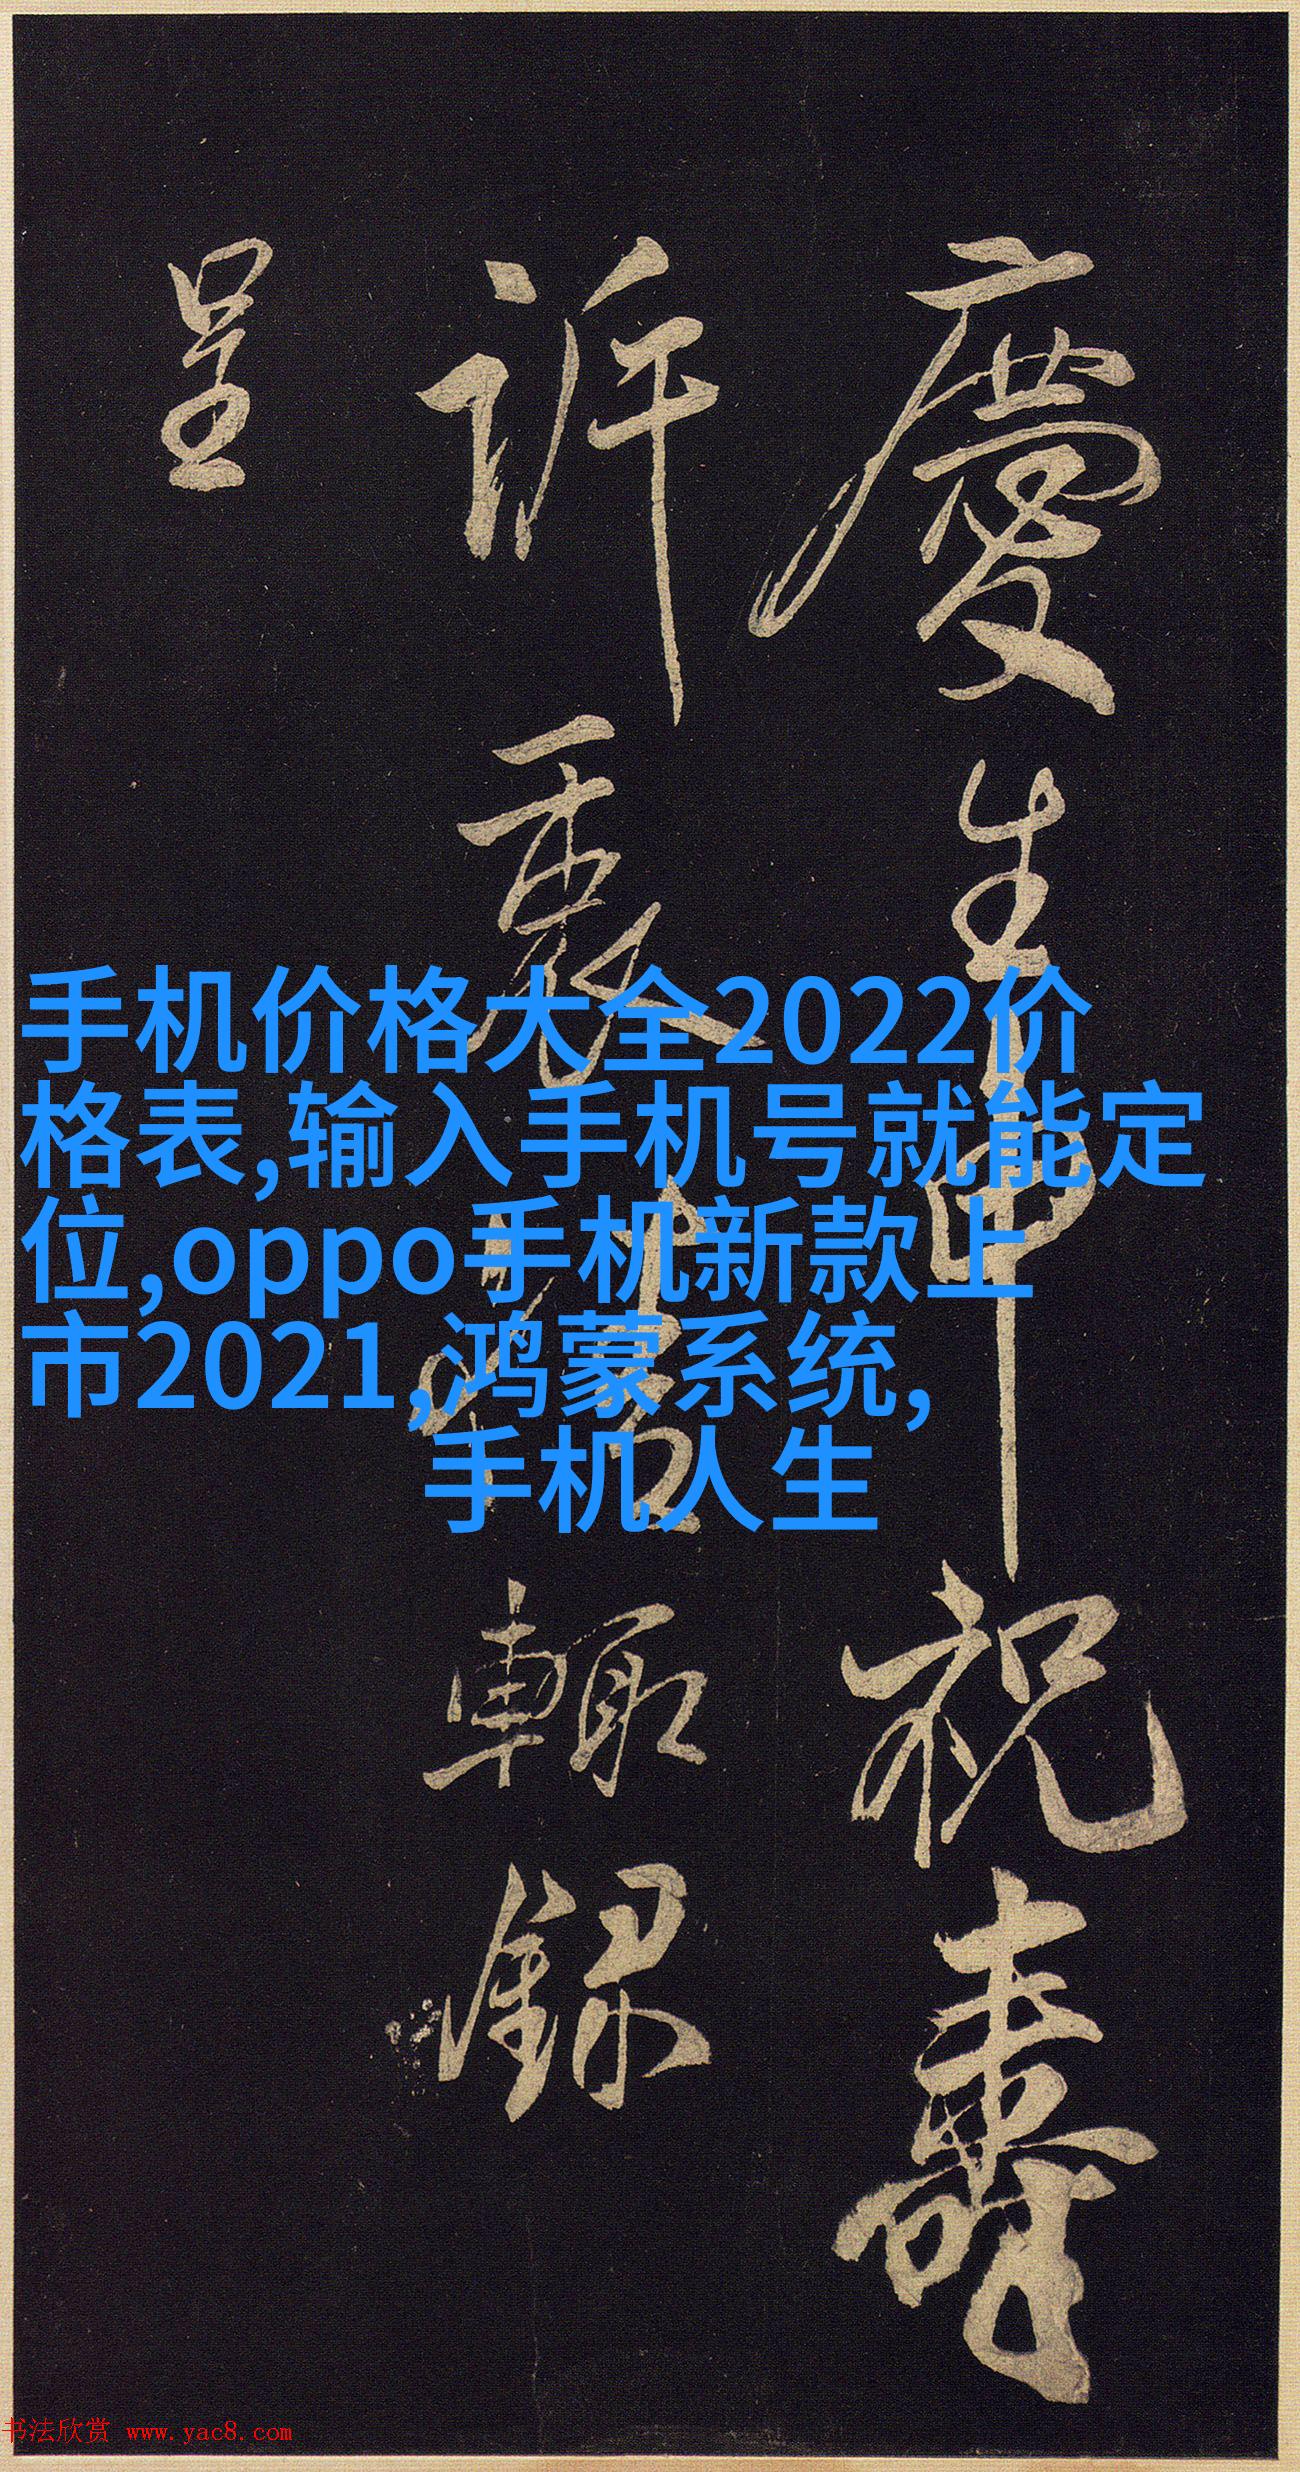 慶生申祝壽
訢裏
輙録
呈
手机价格大全2022价
格表,输入手机号就能定
位,oppo手机新款上
市2021,鸿蒙系统,
手机人生
书法欣赏 www.yac8.com